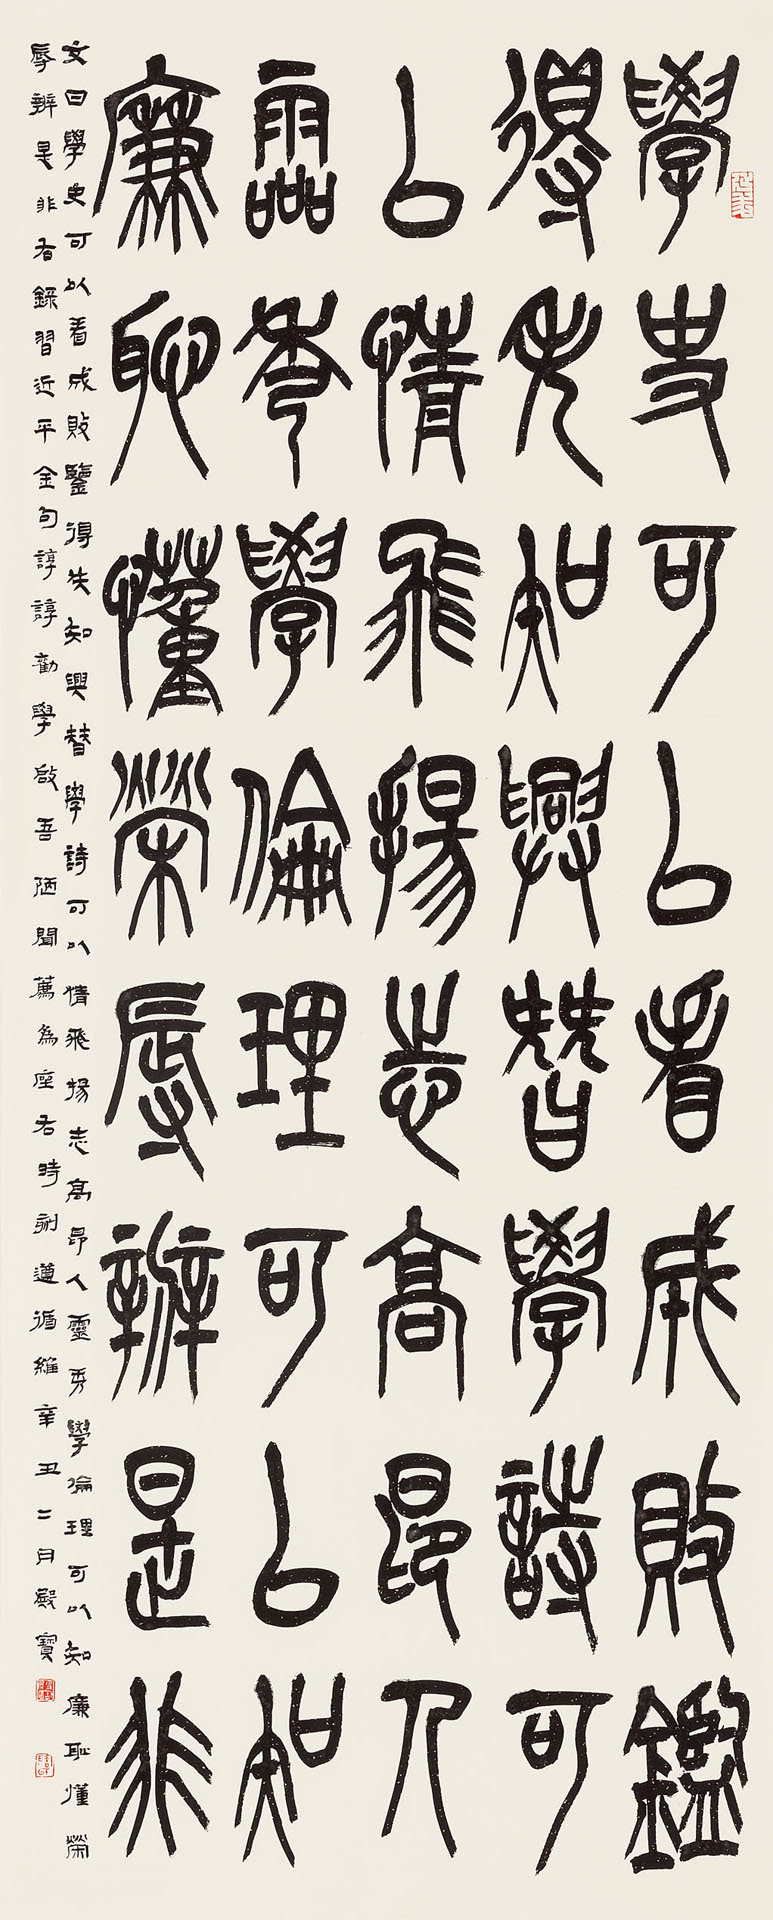 學史可以看成敗鑑
得失知興替學詩可
以情飛揚志高昂人
靈秀學倫理可以知
廉恥懂榮辱辨是非
文曰學史可以看成敗鑒得失知興替學詩可以情飛揚志高昂人靈秀學倫理可以知廉恥懂榮
辱辨是非右錄習近平金句諄諄勸學啟吾陋聞薦為座右時刻遵循維辛丑二月殿寶